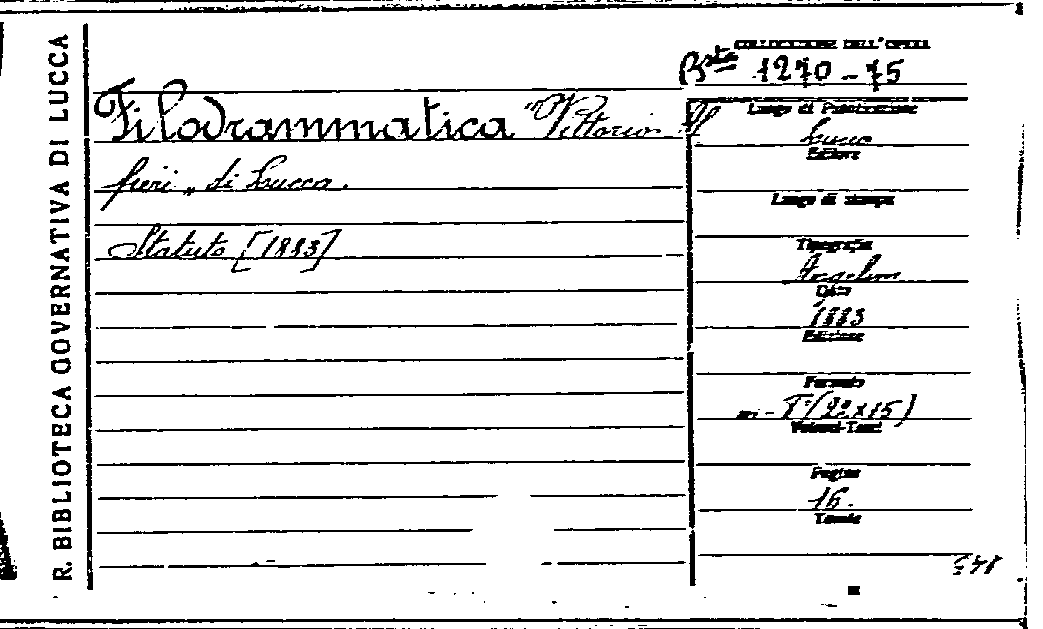 R. BIBLIOTECA GOVERNATIVA DI LUCCA
COLLOCAZIONE DELL'OPERA
Bsta 1270-75
Filodrammatica "Vittorio Al
fieri" di Lucca.
Statuto [1883]
Luogo di Pubblicazione
Lucca
Editore
Luogo di stampa
Tipografia
Angelini
Data
1883
Edizione
Formato
in - 8°(22x15)
Volumi-Tomi
Pagine
16.
Tavole